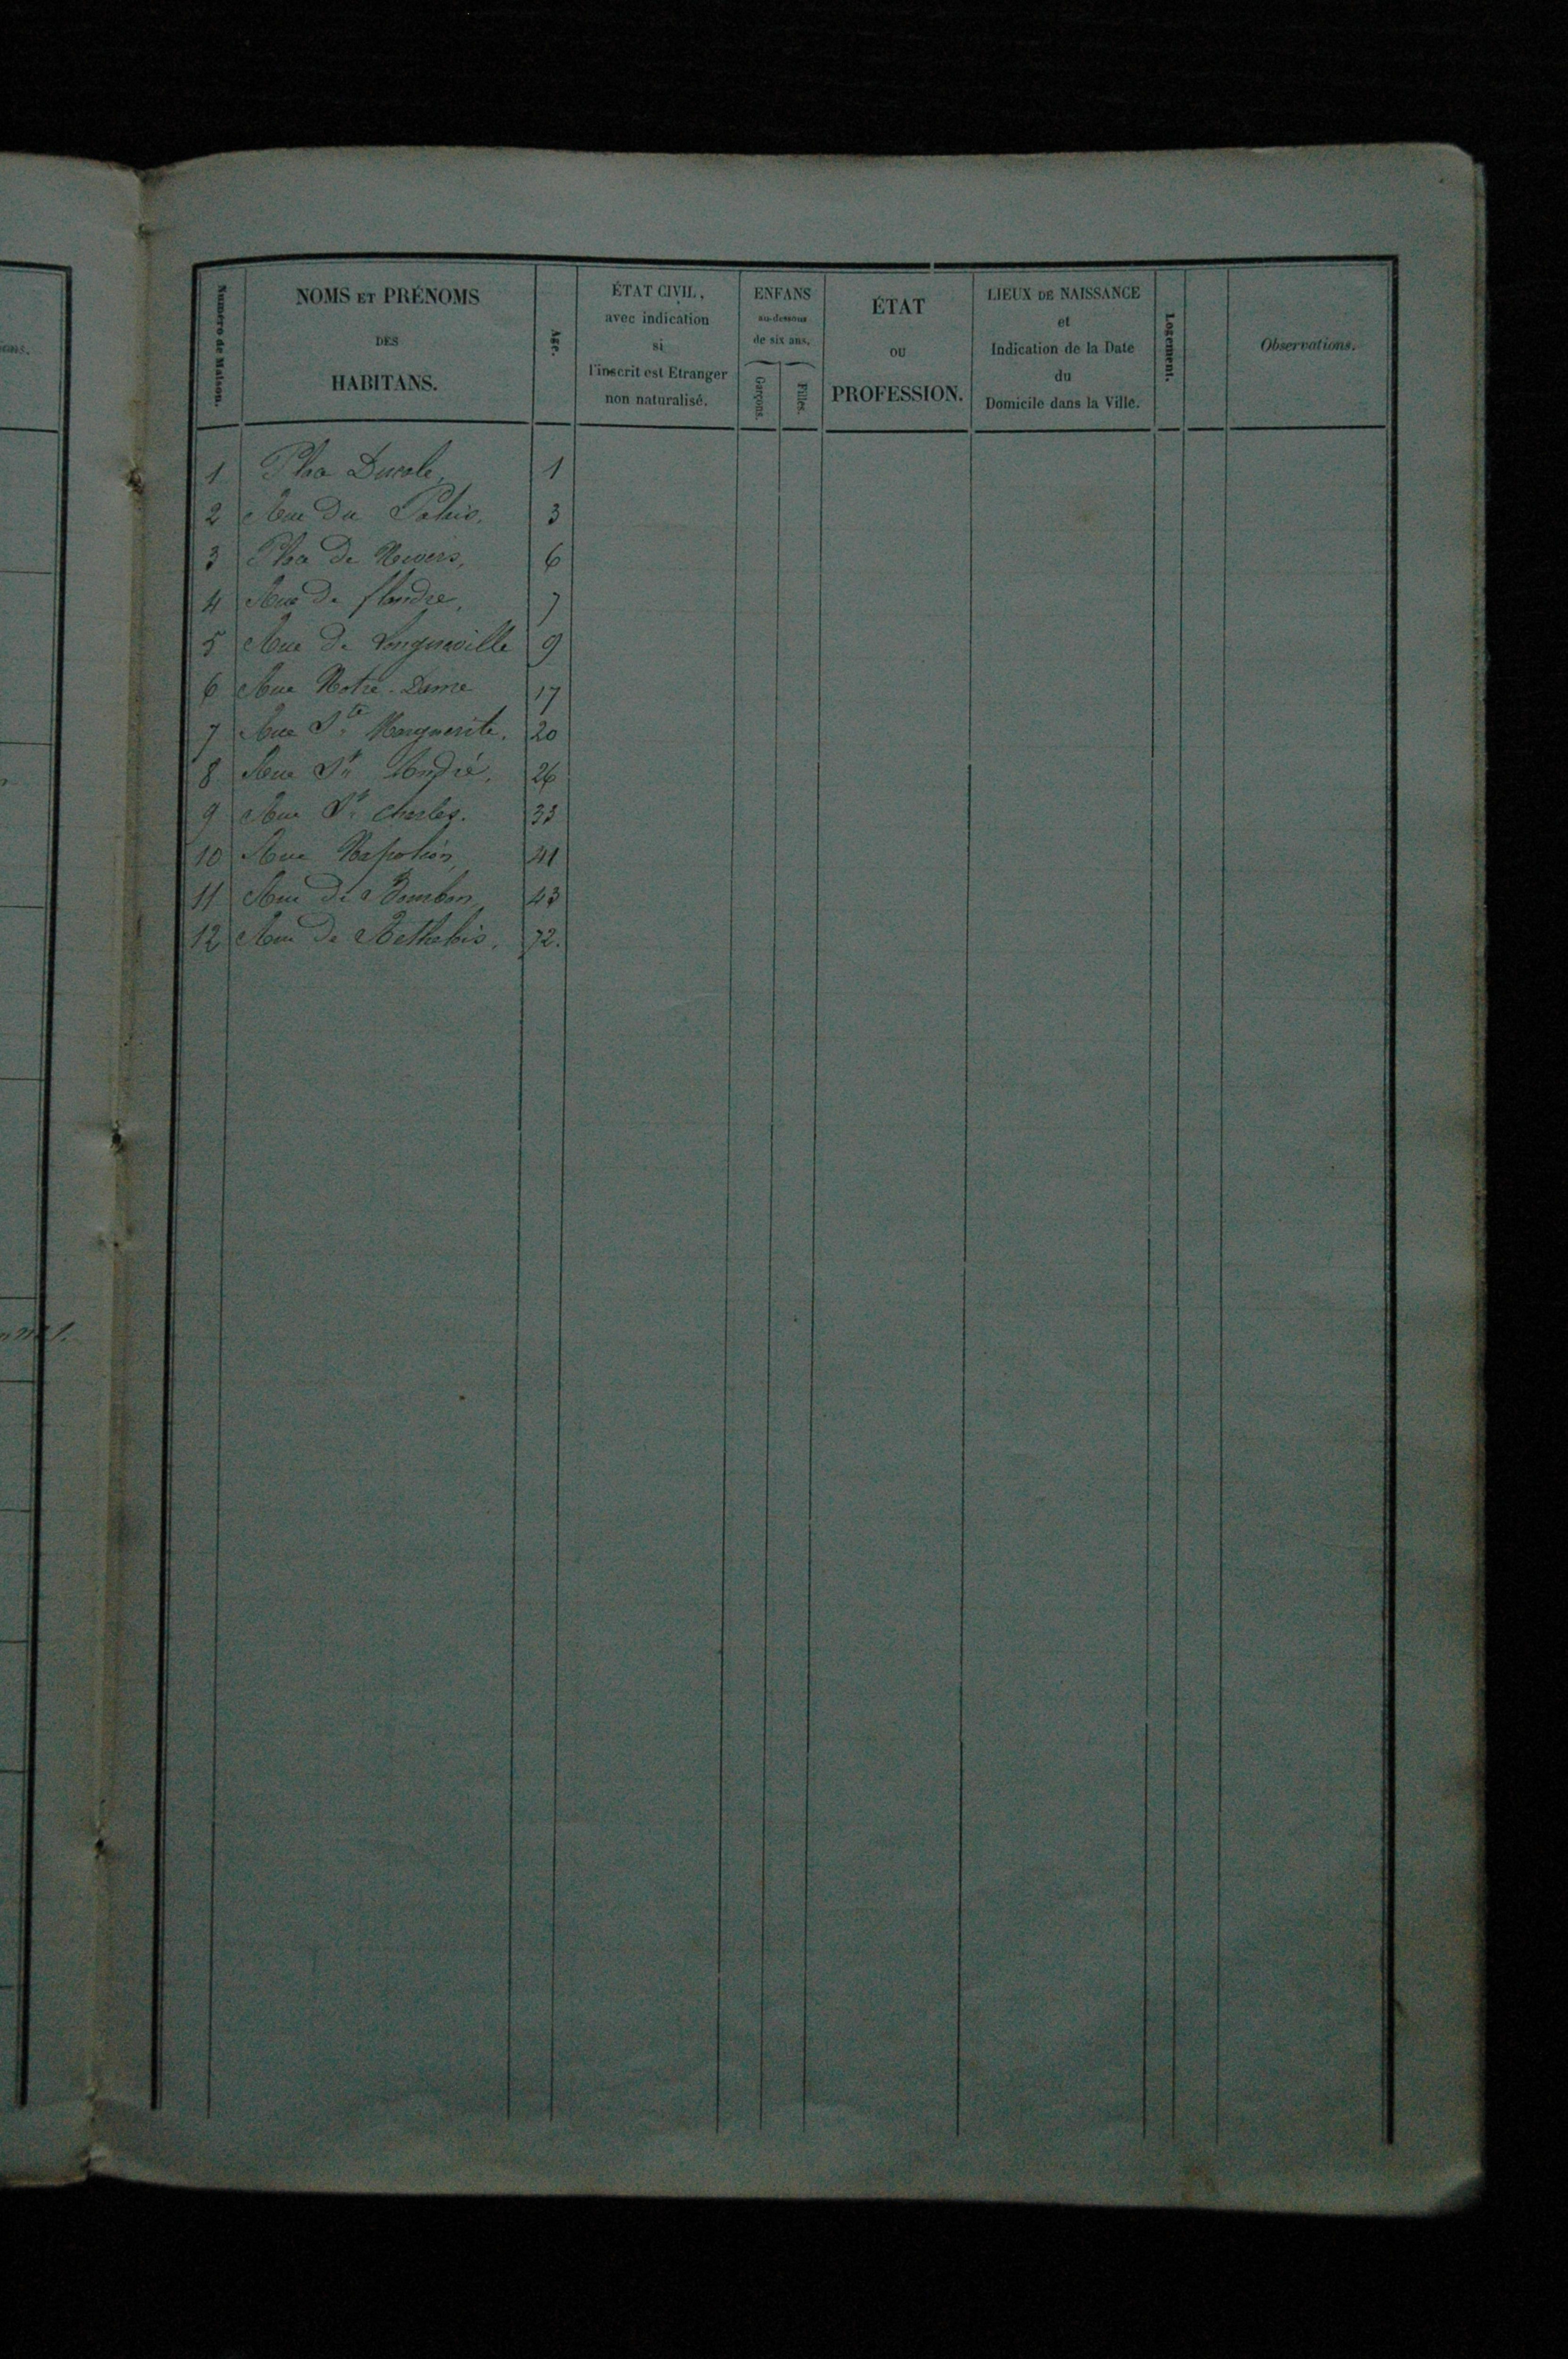 ons.
Numéro de Maison.
NOMS ET PRÉNOMS
DES
HABITANS.
Age.
ÉTAT CIVIL,
avec indication
si
l'inscrit est Etranger
non naturalisé.
ENFANS
au-dessous
de six ans.
Garçons.
Filles.
ÉTAT
OU
PROFESSION.
LIEUX DE NAISSANCE
et
Indication de la Date
du
Domicile dans la Ville.
Logement.
Observations.
1 Place Ducale, 1
2 Rue du Palais, 3
3 Place de Nevers, 6
4 Rue de flandre, 7
5 Rue de Longueville 9
6 Rue Notre-Dame 17
7 Rue Ste Marguerite, 20
8 Rue St André, 26
9 Rue St Charles. 33
10 Rue Napoléon, 41
11 Rue de Bourbon, 43
12 Rue de Rethelois, 72.